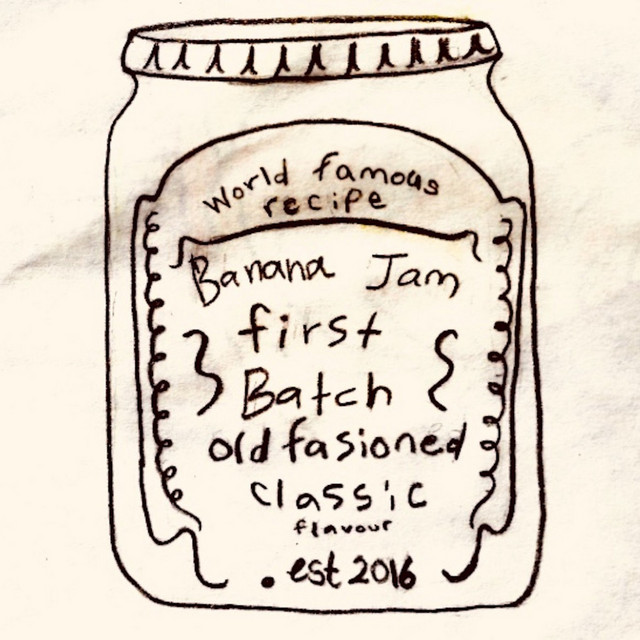 World famous
recipe
Banana Jam
first
Batch
old fasioned
classic
flavour
. est 2016